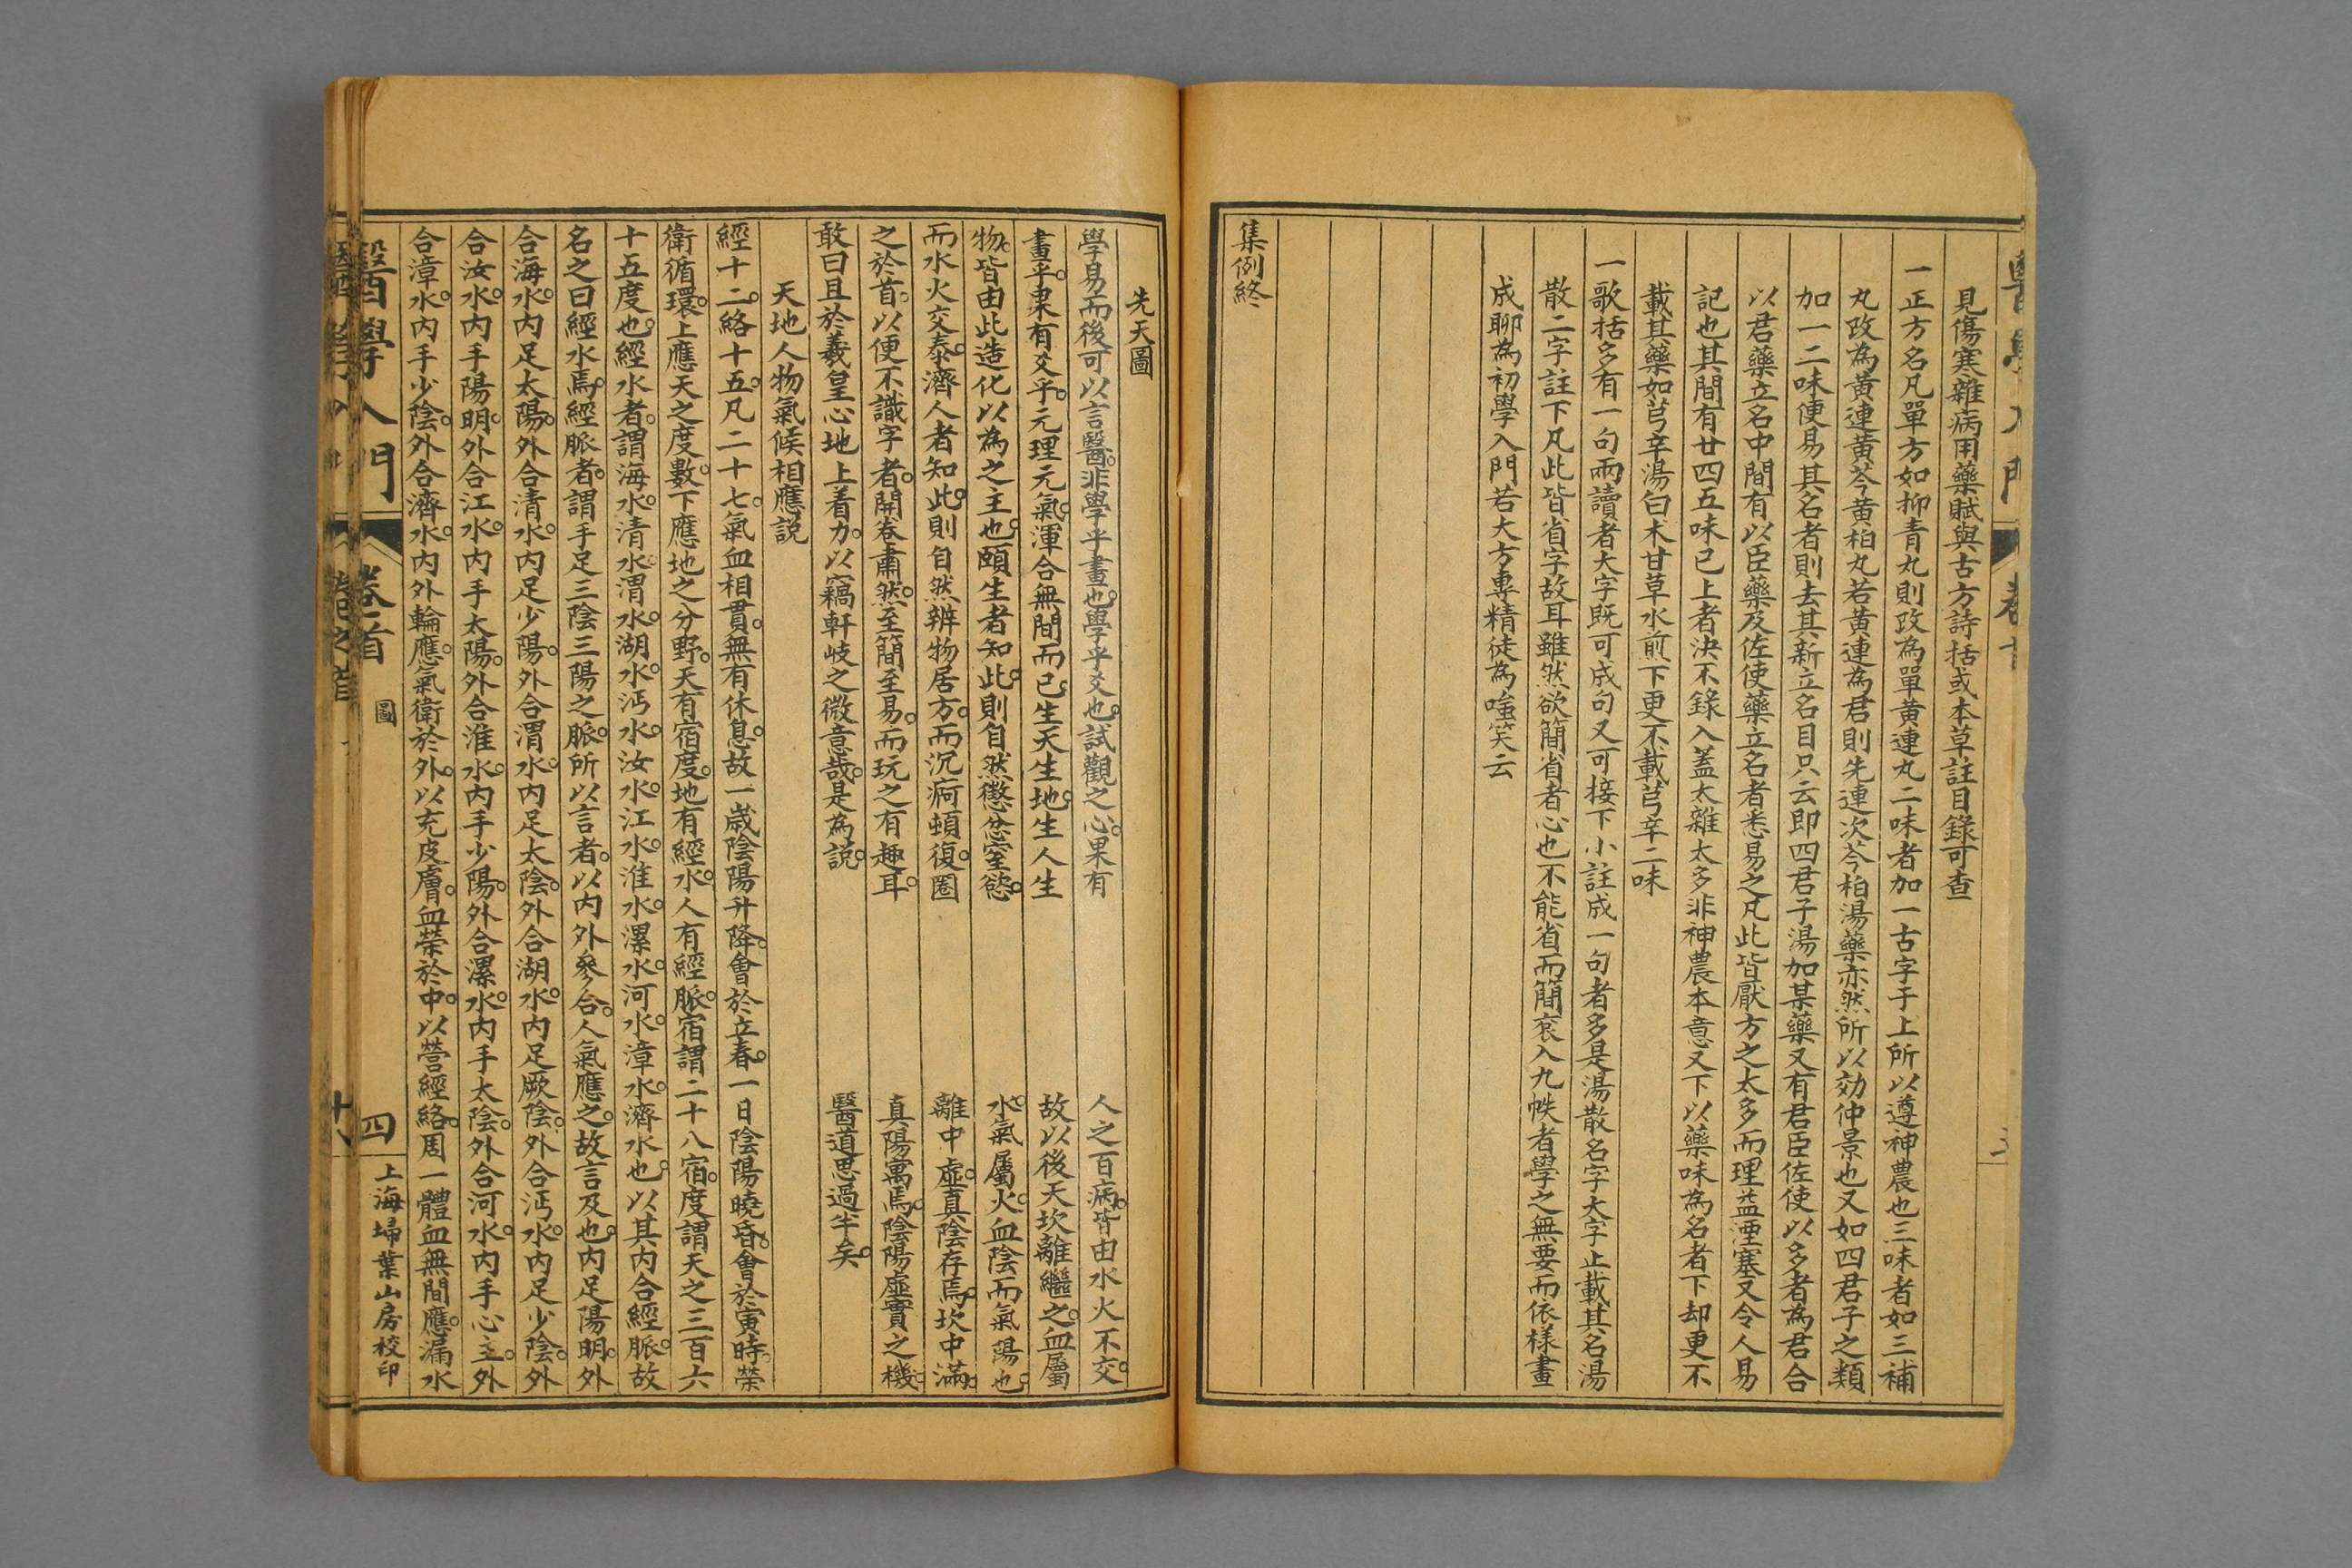 醫學入門 卷首
見傷寒雜病用藥賦與古方詩括或本草註目錄可查
一正方名凡單方如抑青丸則改為單黃連丸二味者加一古字于上所以遵神農也三味者如三補
丸改為黃連黃芩黃柏丸若黃連為君則先連次芩柏湯藥亦然所以効仲景也又如四君子之類
加一二味便易其名者則去其新立名目只云即四君子湯加某藥又有君臣佐使以多者為君合
以君藥立名中間有以臣藥及佐使藥立名者悉易之凡此皆厭方之太多而理益湮塞又令人易
記也其間有廿四五味已上者決不錄入蓋太雜太多非神農本意又下以藥味為名者下却更不
載其藥如芎辛湯白朮甘草水煎下更不載芎辛二味
一歌括多有一句兩讀者大字既可成句又可接下小註成一句者多是湯散名字大字止載其名湯
散二字註下凡此皆省字故耳雖然欲簡省者心也不能省而簡衮入九帙者學之無要而依樣畫
成聊為初學入門若大方專精徒為嗤笑云
集例終
先天圖
學易而後可以言醫。非學乎畫也。學乎爻也。試觀之心。果有 人之百病。皆由水火不交。
畫乎。果有爻乎。元理元氣。渾合無間而已。生天生地。生人生 故以後天坎離繼之。血屬
物。皆由此造化以為之主也。頤生者知此。則自然懲忿窒慾。 水。氣屬火。血陰而氣陽也。
而水火交泰。濟人者知此。則自然辨物居方。而沉痾頓復。圈 離中虛。真陰存焉。坎中滿。
之於首。以便不識字者。開卷肅然。至簡至易。而玩之有趣耳。 真陽寓焉。陰陽虛實之機。
敢曰且於羲皇心地上着力。以竊軒岐之微意哉。是為說。 醫道思過半矣。
天地人物氣候相應說
經十二。絡十五。凡二十七。氣血相貫。無有休息。故一歲陰陽升降。會於立春。一日陰陽曉昏。會於寅時。榮
衛循環。上應天之度數。下應地之分野。天有宿度。地有經水。人有經脈。宿謂二十八宿。度謂天之三百六
十五度也。經水者。謂海水。清水。渭水。湖水。沔水。汝水。江水。淮水。漯水。河水。漳水。濟水也。以其內合經脈。故
名之曰經水焉。經脈者。謂手足三陰三陽之脈。所以言者。以內外參合。人氣應之。故言及也。內足陽明。外
合海水。內足太陽。外合清水。內足少陽。外合渭水。內足太陰。外合湖水。內足厥陰。外合沔水。內足少陰。外
合汝水。內手陽明。外合江水。內手太陽。外合淮水。內手少陽。外合漯水。內手太陰。外合河水。內手心主。外
合漳水。內手少陰。外合濟水。內外輪應。氣衛於外。以充皮膚。血榮於中。以營經絡。周一體血無間。應漏水
醫學入門 卷首 圖 四 上海埽葉山房校印